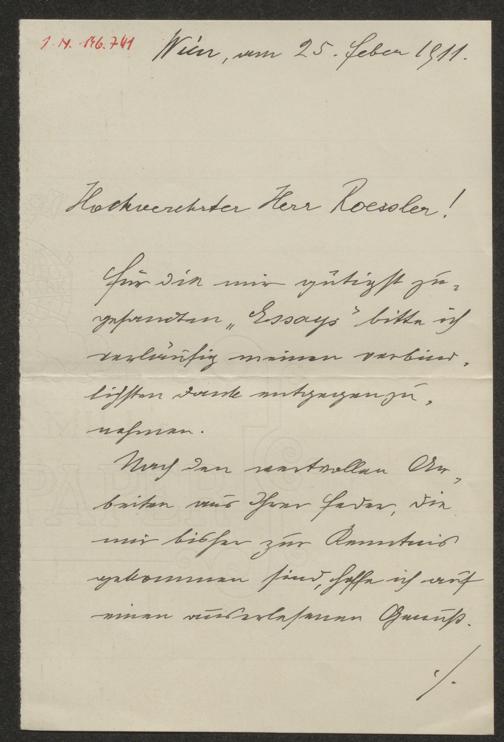 I. N. 146.741
Wien, am 25. Feber 1911.
Hochverehrter Herr Roessler!
Für die mir gütigst zu-
gesandten „Essays" bitte ich
vorläufig meinen verbind-
lichsten Dank entgegenzu-
nehmen.
Nach den wertvollen Ar-
beiten aus Ihrer Feder, die
mir bisher zur Kenntnis
gekommen sind, hoffe ich auf
einen auserlesenen Genuß.
./.